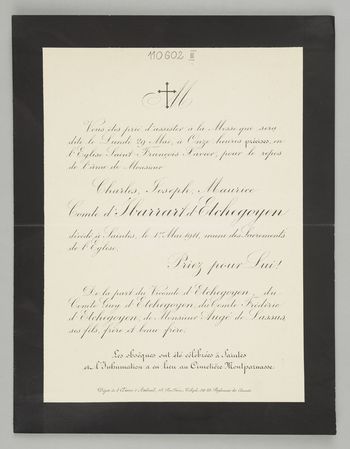 110602 III
M
Vous êtes prié d'assister à la Messe qui sera
dite le Lundi 29 Mai, à Onze heures précises, en
l'Eglise Saint François Xavier, pour le repos
de l'âme de Monsieur
Charles, Joseph, Maurice
Comte d'Ibarrart d'Etchegoyen
décédé à Saintes, le 1er Mai 1911, muni des Sacrements
de l'Eglise.
Priez pour Lui!
De la part du Vicomte d'Etchegoyen, du
Comte Guy d'Etchegoyen, du Comte Frédéric
d'Etchegoyen, de Monsieur Augé de Lassus,
ses fils, frère et beau-frère.
Les obsèques ont été célébrées à Saintes
et l'Inhumation a eu lieu au Cimetière Montparnasse.